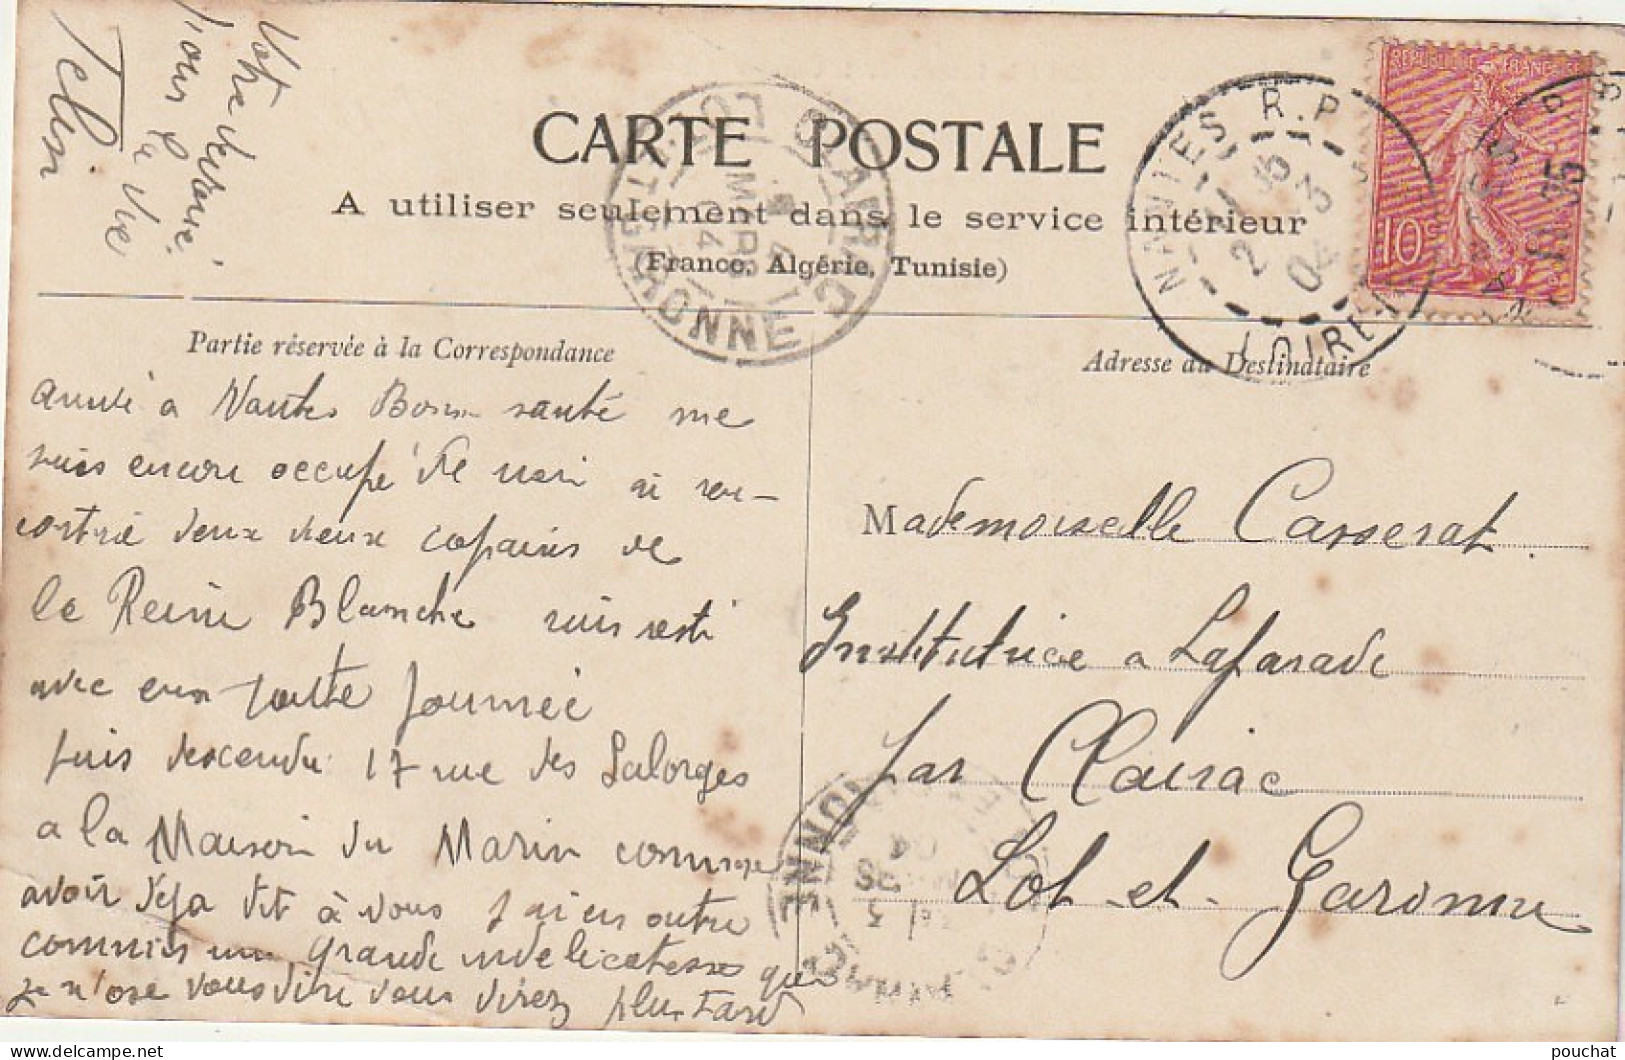 CARTE POSTALE
A utiliser seulement dans le service intérieur
(France, Algérie, Tunisie)
Partie réservée à la Correspondance
Adresse du Destinataire
REPUBLIQUE FRANÇAISE
10
NANTES R.P.
LOIRE
CLAIRAC
LOT ET GARONNE
4 MARS 04
Votre
la Vie
arrivé a Nantes Bonne santé me
suis encore occupé de ai ren-
contrié deux vieux copains de
la Reine Blanche suis resté
avec eux toutte journnée
puis descendu 17 rue des Salorges
a la Maison du Marin comme
avoir deja dit à vous j'ai en outre
commis une grande indelicatesse que
je n'ose vous dire vous direz plus tard
Mademoiselle Casserat.
Institutrice a Lafarade
par Clairac
Lot-et-Garonne
pouchat